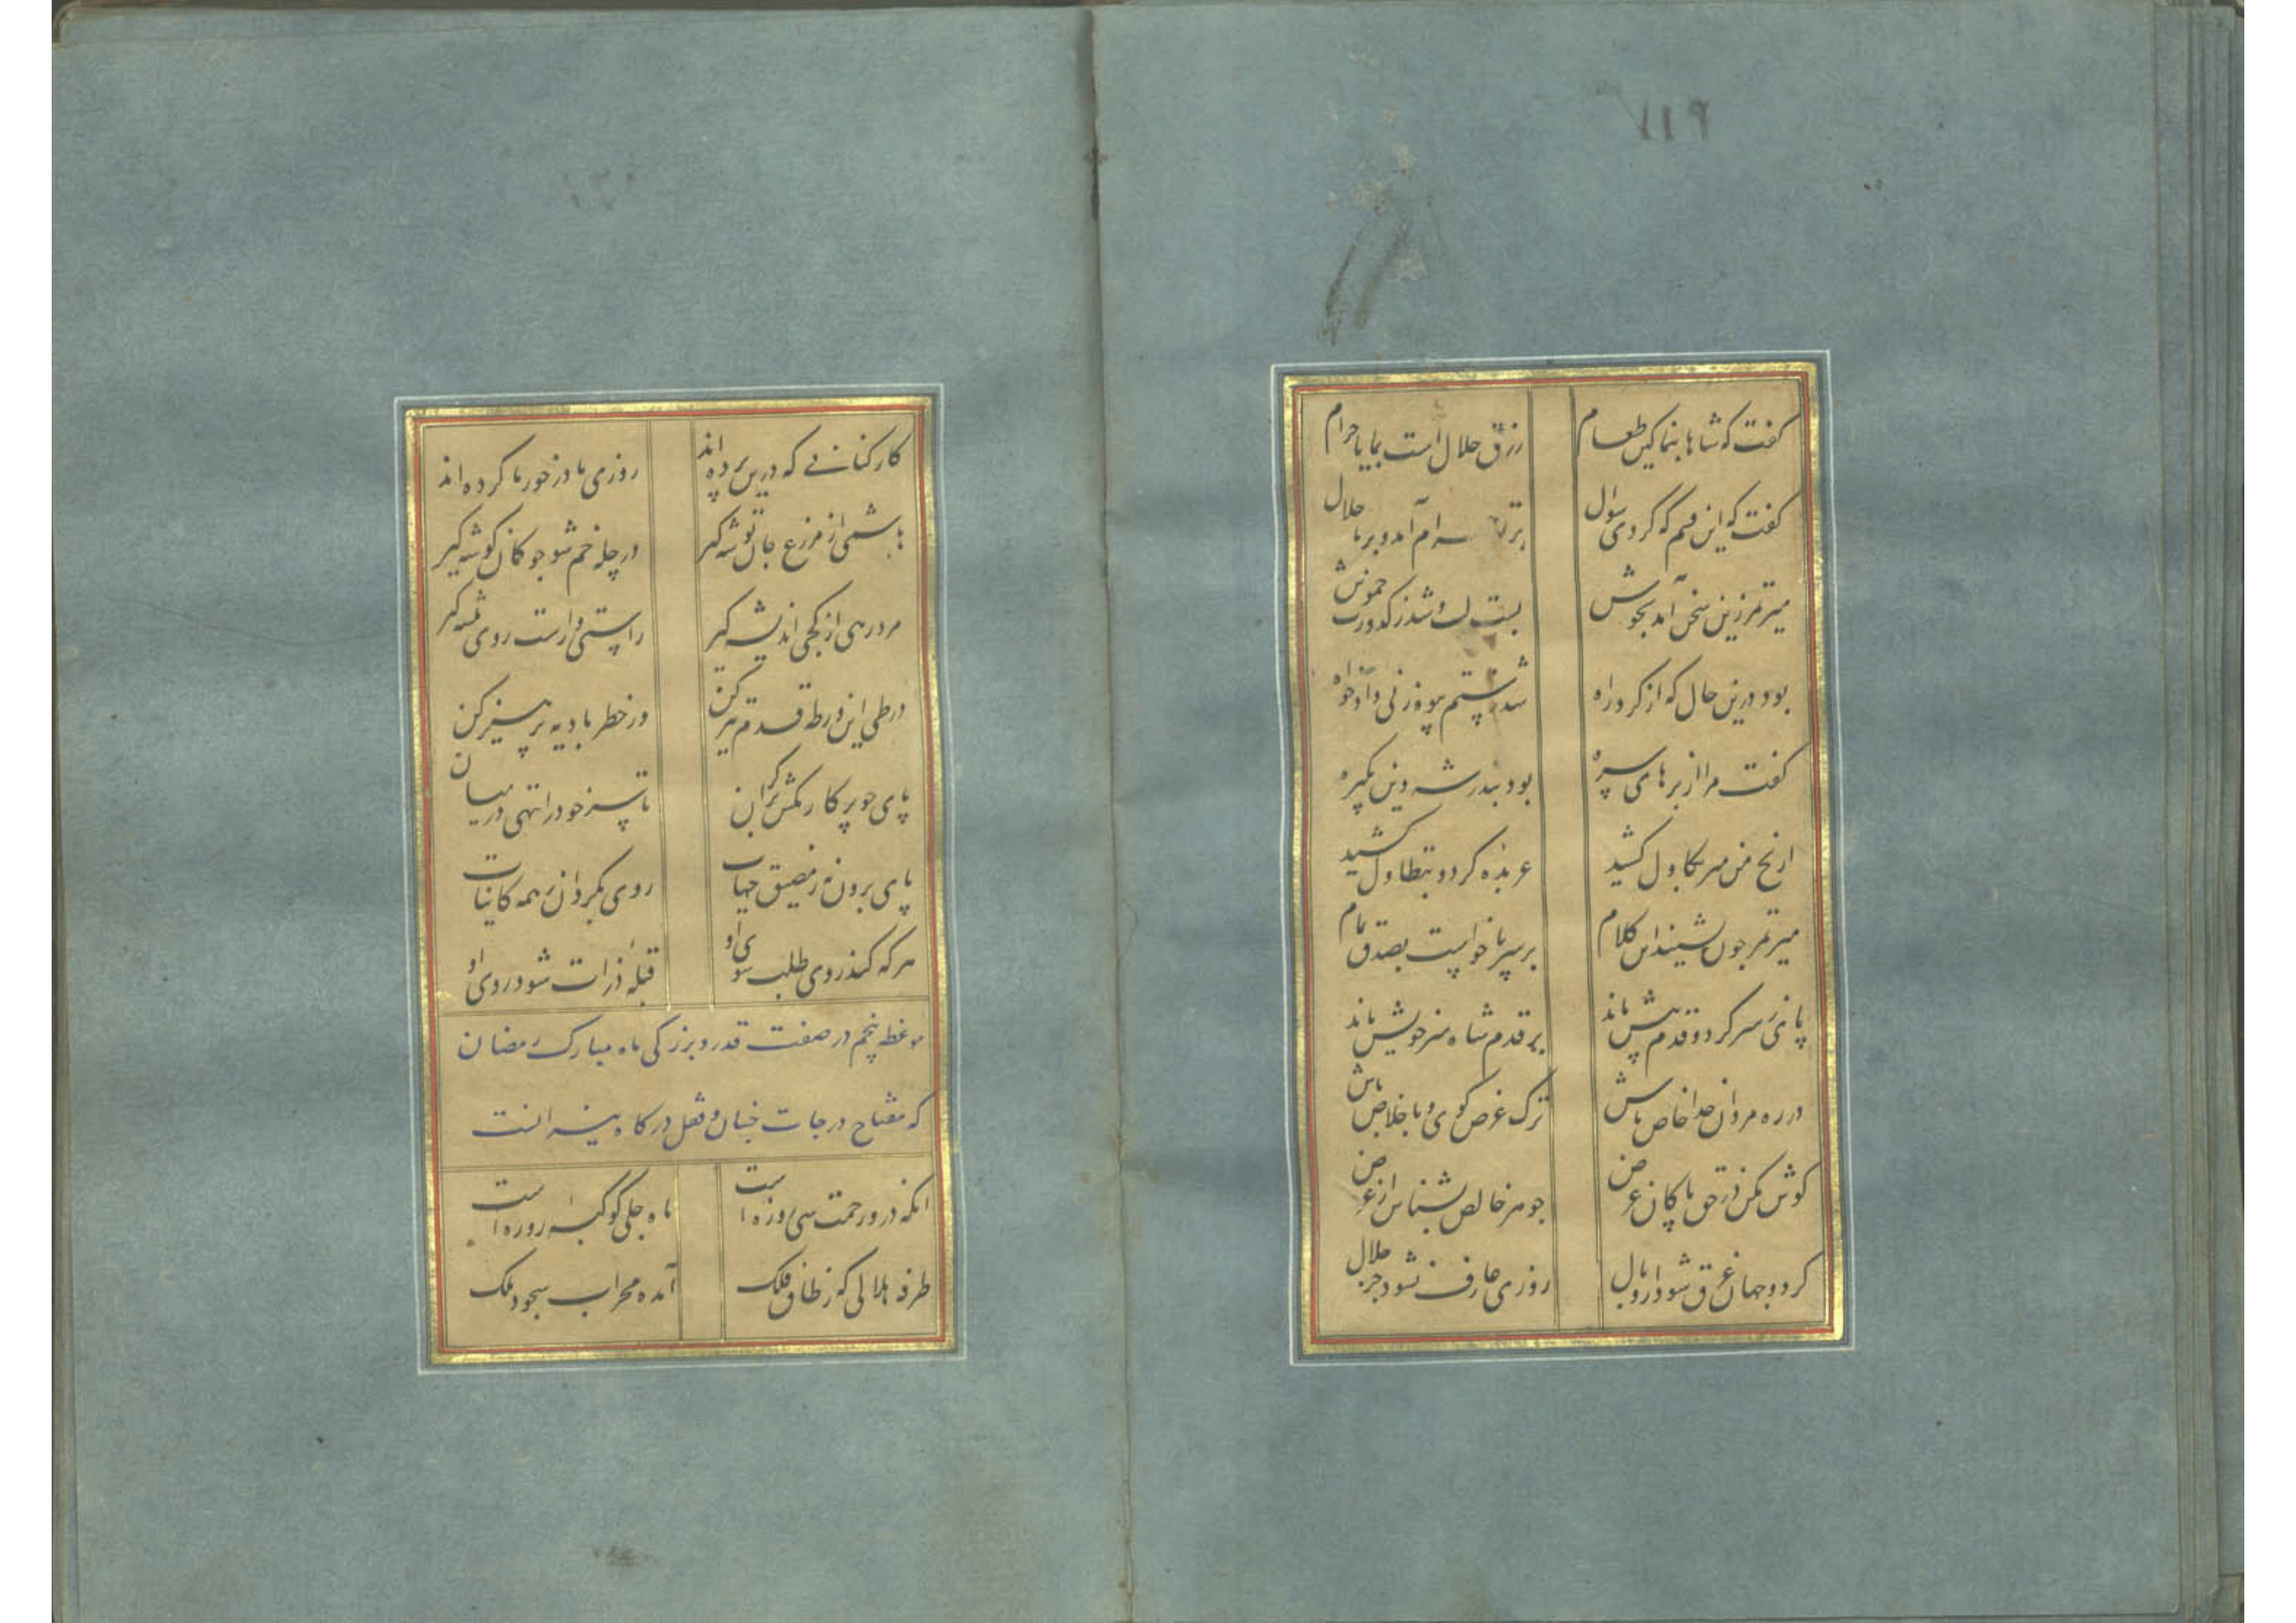 گفت که شاها بنما کین طعام
رزق حلال است بما یا حرام
گفت که این قسم که کردی سوال
بر تو حرام آمد و بر ما حلال
میر تمر زین سخن آمد بجوش
بست لب و شد ز کدورت خموش
بود درین حال که از گرد راه
شد ز ستم پیوه زنی دادخواه
گفت مرا از بره‌های سره
بود بنذر شه دین یکبره
از نخ من میر بکاول کشید
عربده کرد و بتطاول کشید
میر تمر چون شنید این کلام
بر سر پا خواست بصدق تمام
پای ز سر کرد و قدم پیش ماند
بر قدم شاه سر خویش ماند
در ره مردان خدا خاص باش
ترک غرض گوی و باخلاص باش
گوش مکن در حق پاکان غرض
جوهر خالص بشناس از عرض
گر دو جهان غرق شود از وبال
روزی عارف نشود جز حلال
کارکنانی که درین پرده اند
روزی ما در خور ما کرده اند
هاشمی از مزرع جان توشه گیر
در چله خم شو چو کمان گوشه گیر
مرد رهی از کجی اندیشه گیر
راستی و راست روی پیشه گیر
در طی این ورطه قدم تیز کن
وز خطر بادیه پرهیز کن
پای چو پرکار مکش بر کران
تا سر خود را ننهی در میان
پای برون نه ز مضیق جهات
روی بگردان ز همه کاینات
هر که کند روی طلب سوی او
قبله ذرات شود روی او
موعظه پنجم در صفت قدر و بزرگی ماه مبارک رمضان
که مفتاح درجات جنان و قفل درکات نیران است
آنکه در و رحمت سی روزه است
ماه جلی کوکبه روزه است
طرفه هلالی که ز طاق فلک
آمده محراب سجود ملک